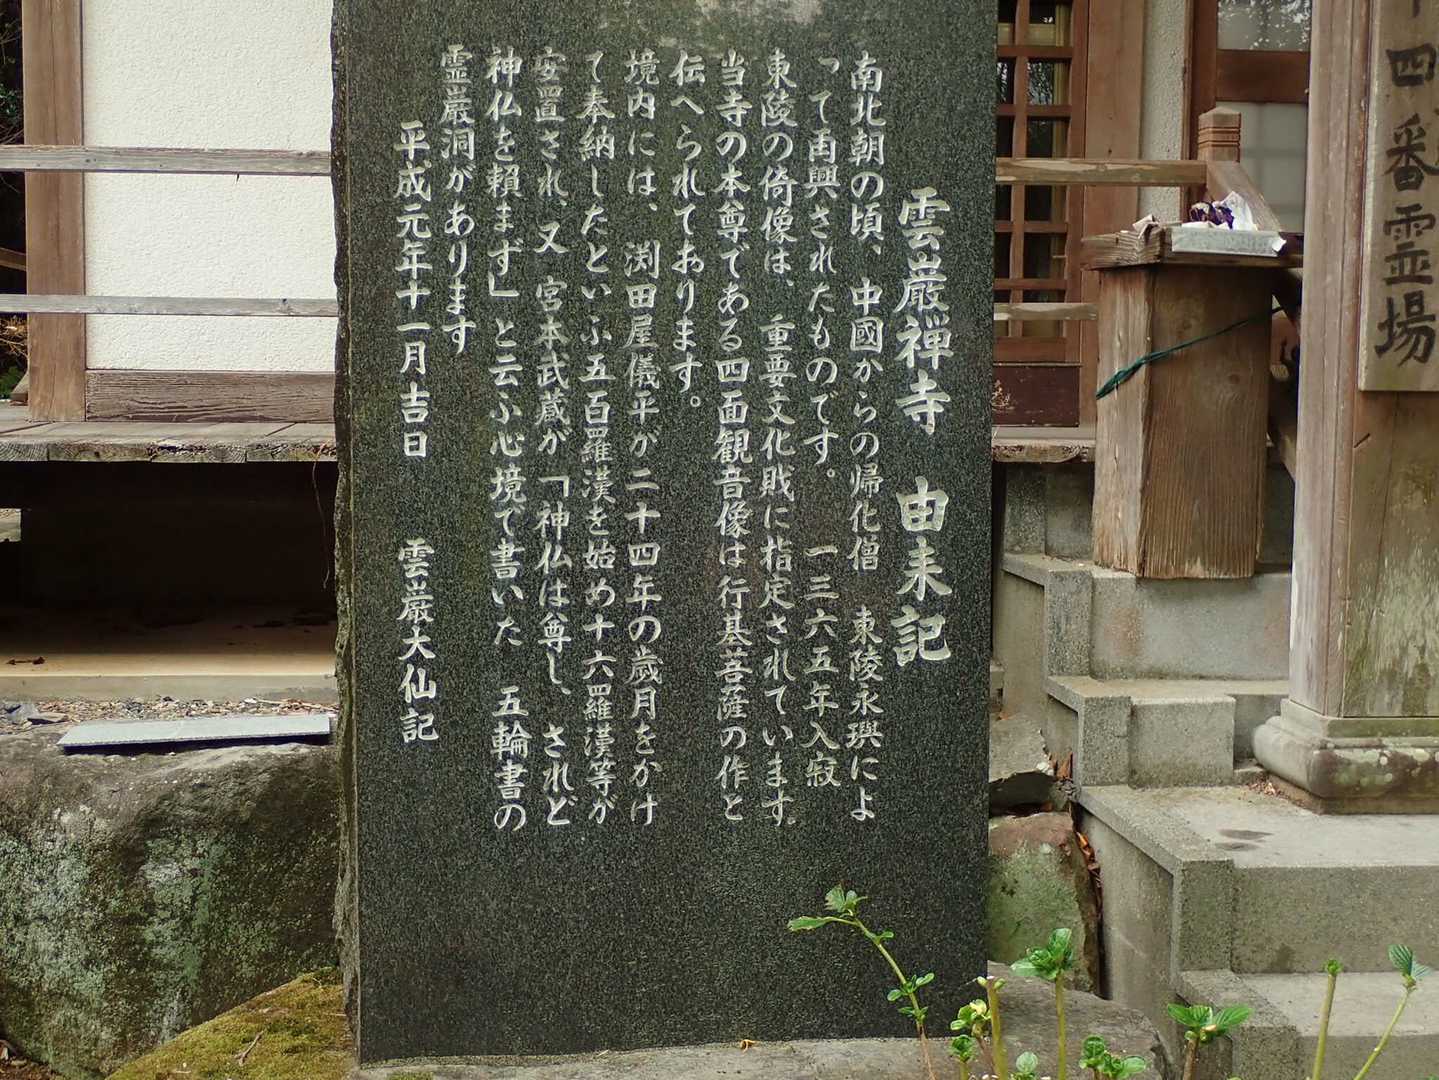 十四番霊場
雲巌禅寺 由来記
南北朝の頃、中國からの帰化僧 東陵永璵によ
って再興されたものです。 一三六五年入寂
東陵の倚像は、重要文化財に指定されています。
当寺の本尊である四面観音像は行基菩薩の作と
伝へられております。
境内には、渕田屋儀平が二十四年の歳月をかけ
て奉納したといふ五百羅漢を始め十六羅漢等が
安置され、又 宮本武蔵が「神仏は尊し、されど
神仏を頼まず」と云ふ心境で書いた 五輪書の
霊巌洞があります
平成元年十一月吉日 雲巌大仙記